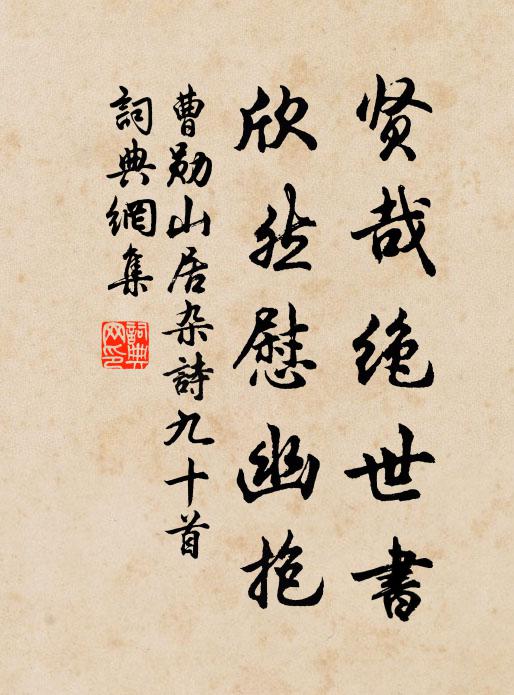 贤哉绝世書
欣然慰幽抱
曹勋山居杂詩九十首
詞典網集
詞典网印